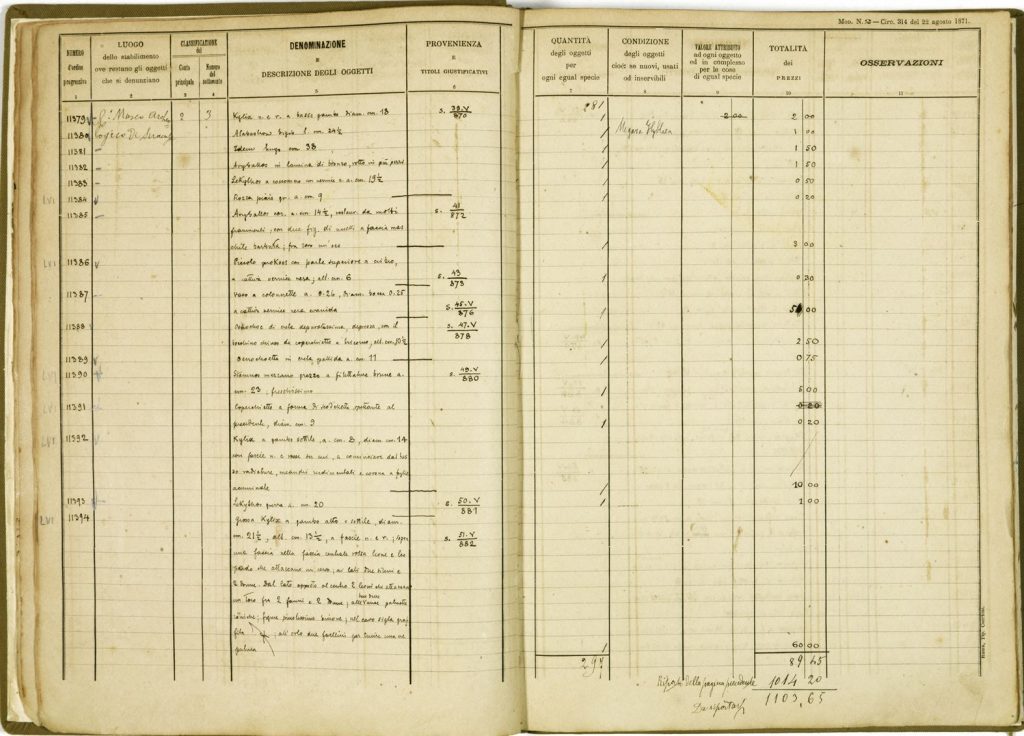 Mod. N. 53 — Circ. 314 del 22 agosto 1871.
NUMERO d'ordine progressivo
LUOGO dello stabilimento ove restano gli oggetti che si denunziano
CLASSIFICAZIONE del
Conto principale
Numero del sottoconto
DENOMINAZIONE E DESCRIZIONE DEGLI OGGETTI
PROVENIENZA E TITOLI GIUSTIFICATIVI
QUANTITÀ degli oggetti per ogni egual specie
CONDIZIONE degli oggetti cioè: se nuovi, usati od inservibili
VALORE ATTRIBUTO ad ogni oggetto od in complesso per le cose di egual specie
TOTALITÀ dei PREZZI
OSSERVAZIONI
1 2 3 4 5 6 7 8 9 10 11
281
11379 Museo 2 3 Kylix n. e r. a basso gambo diam. cm. 18 S. 39.V/870 1 2 00 2 00
11380 Alabastron cm. 24½ 1 Megara Hyblaea 1 00
11381 Idem lungo cm. 38 1 1 50
11382 Aryballos in lamina di bronzo, rotto in più pezzi 1 1 50
11383 Lekythos a vernice n. a. cm. 19½ 1 0 50
LVI 11384 gr. a. cm. 9 1 0 20
11385 Aryballos cor. a. cm. 14½, restaur. da molti S. 41/872
frammenti; con due fig. di a faccia mas
chile barbata; fra loro 1 3 00
LVI 11386 Piccolo prokoos con parte superiore a
a cattiva vernice nera; alt. cm. 6 S. 43/873 1 0 20
11387 Vaso a colonnette a. 0.26, diam. bocca 0.25
a cattiva vernice nera svanita S. 45.V/876 1 5 00
11388 di creta depuratissima, depressa, con il S. 47.V/878
a coperchietto a alt. cm. 10½ 1 2 50
11389 Oenochoetta in creta pallida a. cm. 11 1 0 75
LVI 11390 Stamnos mezzano grezzo a filettature brune a. S. 49.V/880
cm. 23; freschissimo 1 5 00
LVI 11391 Coperchietto a forma di scodelletta spettante al 0 20
precedente, diam. cm. 9 1 0 20
LVI 11392 Kylix a gambo sottile, a. cm. 8, diam. cm. 14
con fascie n. e rosse su cui, a cominciare dal bas
so radiature, meandri rudimentali e corona a foglie
acuminate 1 10 00
11393 Lekythos grezza a. cm. 20 S. 50.V/881 1 1 00
LVI 11394 Grossa Kylix a gambo alto e sottile, diam.
cm. 21½, alt. cm. 13½, a fascie n. e r.; sopra S. 51.V/882
una faccia nella fascia centrale vedesi leone e leo
pardo che attaccano un toro; ai lati due
2 donne. Dal lato opposto al centro 2 leoni che attaccano
un toro fra 2 e 2 donne; alle due anse palmette
; figure; nel cavo sigla graf
fita; all'orlo due forellini per cucire una re
1 60 00
297 89 45
Riporto della pagina precedente 1014 20
Da riportarsi 1103,65